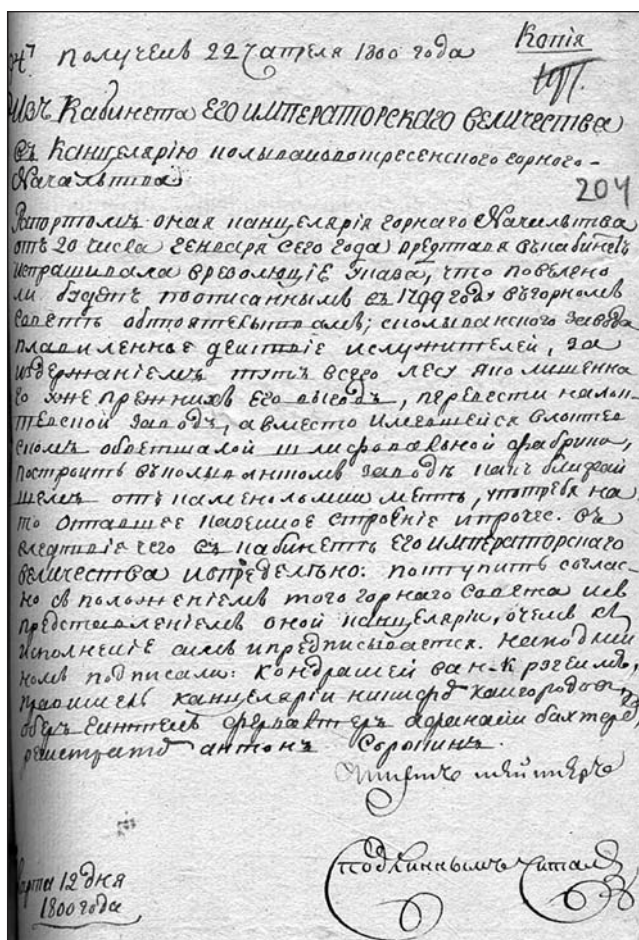 Копія
получен 22 апреля 1800 года
204
Изъ Кабинета ЕГО ИМПЕРАТОРСКАГО ВЕЛИЧЕСТВА
въ Канцелярію Колывановоскресенского горного
Начальства
Рапортомъ оная канцелярія горнаго Начальства
отъ 20 числа Генваря сего года представя въ кабинетъ
испрашивала въ резолюціе Указа, что повелено
ли будетъ по описаннымъ въ 1799 году въ горномъ
Совете обстоятельствамъ; с колыванского завода
плавиленное действіе и служителей, за
издержаніемъ тутъ всего лесу и по лишенна
го уже прежнихъ его выгодъ, перевести на лок
тевской заводъ, а вместо имевшейся в локтев
скомъ обветшалой шлифовальной фабрики,
построить въ колыванскомъ заводе какъ ближай
шемъ отъ каменоломни месте, употребя на
то оставшее казенное строеніе и прочее. въ
следствіе чего въ кабинетъ ЕГО ИМПЕРАТОРСКАГО
ВЕЛИЧЕСТВА и определено: поступить соглас-
но съ положеніемъ того горнаго Совета и съ
представленіемъ оной канцеляріи, о чемъ къ
исполненіе симъ и предписывается. на подлин
номъ подписали:
правитель канцеляріи
обер афанасий
регистратор антонъ Соропинъ.
С подлиннымъ читалъ
Марта 12 дня
1800 года